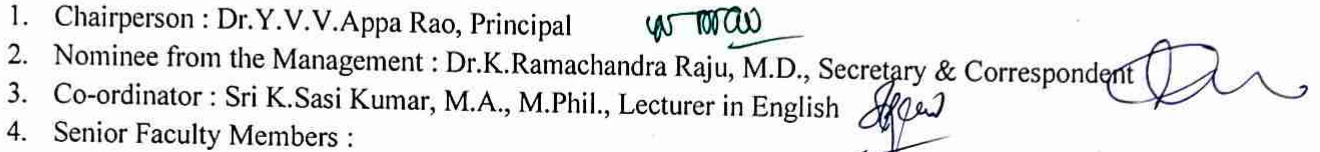 1. Chairperson : Dr.Y.V.V.Appa Rao, Principal
2. Nominee from the Management : Dr.K.Ramachandra Raju, M.D., Secretary & Correspondent
3. Co-ordinator : Sri K.Sasi Kumar, M.A., M.Phil., Lecturer in English
4. Senior Faculty Members :